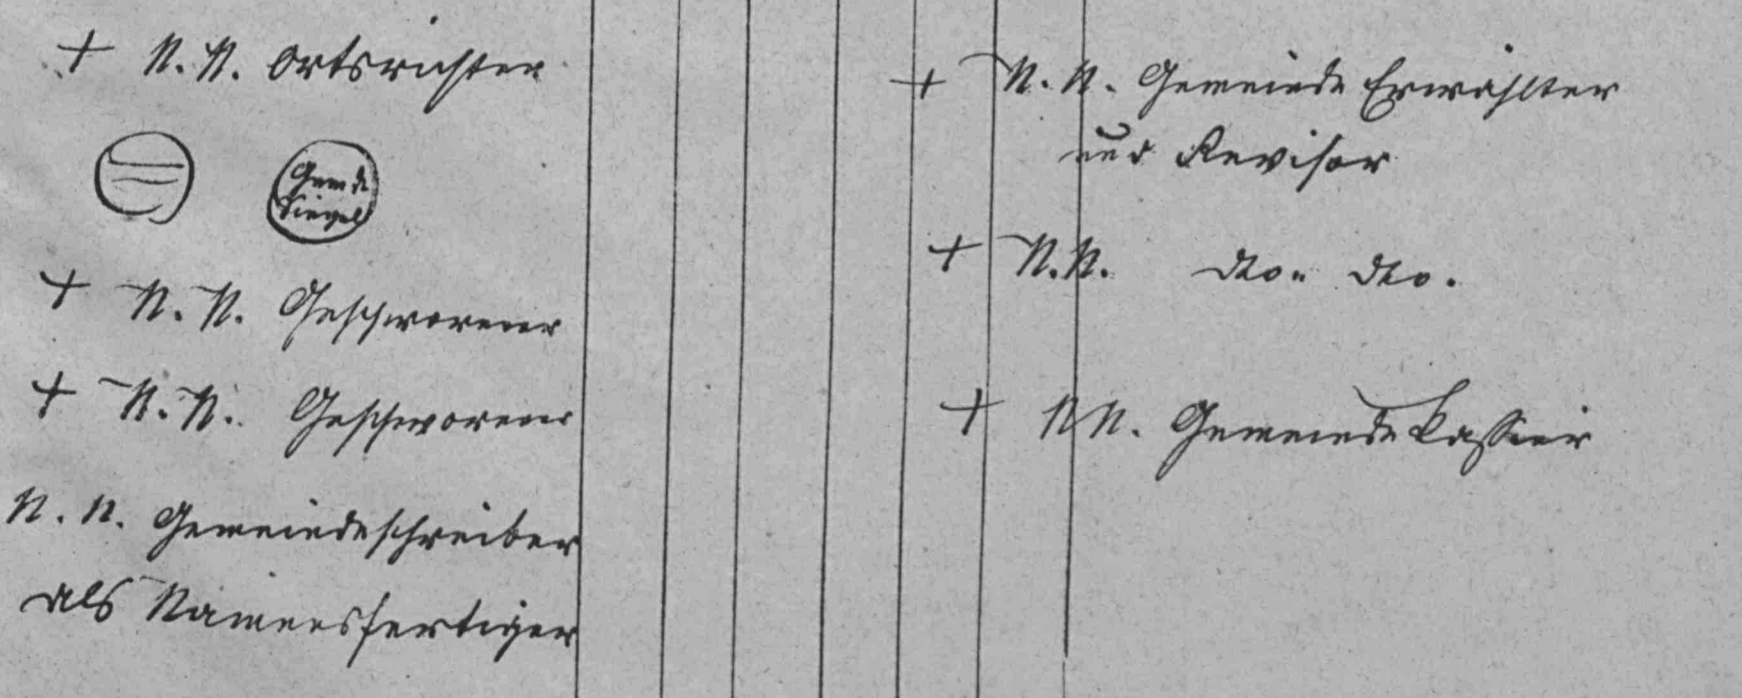 + N. N. Ortsrichter
Gemde
Siegel
+ N. N. Geschworener
+ N. N. Geschworener
N. N. Gemeindeschreiber
als Namensfertiger
+ N. N. Gemeinde Erwählter
und Revisor
+ N. N. dto. dto.
+ N N. Gemeinde Kassier